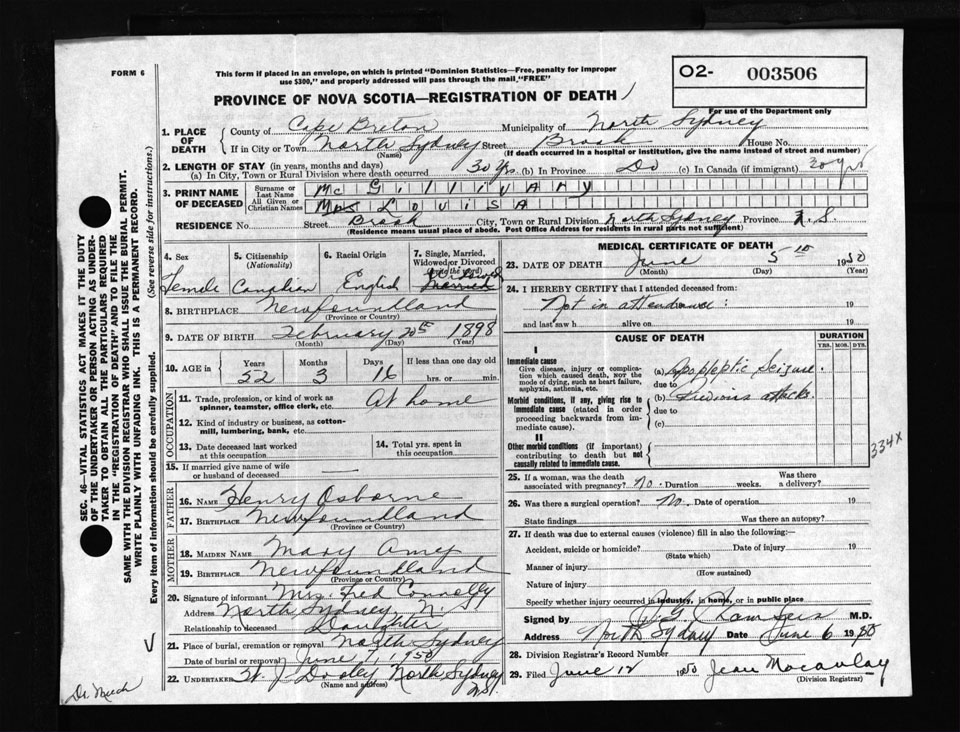 FORM 6
This form if placed in an envelope, on which is printed "Dominion Statistics—Free, penalty for improper
use $300," and properly addressed will pass through the mail, "FREE"
O2- 003506
For use of the Department only
PROVINCE OF NOVA SCOTIA—REGISTRATION OF DEATH
1. PLACE OF DEATH { County of Cape Breton Municipality of North Sydney
If in City or Town North Sydney Street Brook House No.
(Name) (If death occurred in a hospital or institution, give the name instead of street and number)
2. LENGTH OF STAY (in years, months and days)
(a) In City, Town or Rural Division where death occurred 30 Yrs. (b) In Province Do (c) In Canada (if immigrant) 30 yrs
3. PRINT NAME OF DECEASED { Surname or Last Name McGillivary
All Given or Christian Names Mrs Louisa
RESIDENCE No. Street Brook City, Town or Rural Division North Sydney Province N.S.
(Residence means usual place of abode. Post Office Address for residents in rural parts not sufficient)
4. Sex Female
5. Citizenship (Nationality) Canadian
6. Racial Origin English
7. Single, Married, Widowed or Divorced (write the word) Widowed Married
8. BIRTHPLACE Newfoundland
(Province or Country)
9. DATE OF BIRTH February 20th 1898
(Month) (Day) (Year)
10. AGE in { Years 52 Months 3 Days 16 If less than one day old
hrs. or min.
OCCUPATION
11. Trade, profession, or kind of work as spinner, teamster, office clerk, etc. At home
12. Kind of industry or business, as cotton-mill, lumbering, bank, etc.
13. Date deceased last worked at this occupation
14. Total yrs. spent in this occupation
15. If married give name of wife or husband of deceased —
FATHER
16. NAME Henry Osborne
17. BIRTHPLACE Newfoundland
(Province or Country)
MOTHER
18. MAIDEN NAME Mary
19. BIRTHPLACE Newfoundland
(Province or Country)
20. Signature of informant Mrs. Fred Connolly
Address North Sydney N.
Relationship to deceased Daughter
21. Place of burial, cremation or removal North Sydney
Date of burial or removal June 1950
22. UNDERTAKER Dooley North Sydney
(Name and address) N.S.
MEDICAL CERTIFICATE OF DEATH
23. DATE OF DEATH June 5 10 1950
(Month) (Day) (Year)
24. I HEREBY CERTIFY that I attended deceased from:
Not in attendance: 19
and last saw h alive on 19
CAUSE OF DEATH
DURATION
YRS. MOS. DYS.
I
Immediate cause
Give disease, injury or complication which caused death, not the mode of dying, such as heart failure, asphyxia, asthenia, etc.
(a) Apopleptic Seizure.
due to
Morbid conditions, if any, giving rise to immediate cause (stated in order proceeding backwards from immediate cause).
(b) Previous attacks.
due to
(c)
II
Other morbid conditions (if important) contributing to death but not causally related to immediate cause.
334X
25. If a woman, was the death associated with pregnancy? No. Duration weeks. Was there a delivery?
26. Was there a surgical operation? No. Date of operation 19
State findings Was there an autopsy?
27. If death was due to external causes (violence) fill in also the following:—
Accident, suicide or homicide? Date of injury 19
(State which)
Manner of injury
(How sustained)
Nature of injury
Specify whether injury occurred in industry, in home, or in public place
Signed by M.D.
Address North Sydney Date June 6 1950
28. Division Registrar's Record Number
29. Filed June 12 1950 Jean Macaulay
(Division Registrar)
SEC. 46—VITAL STATISTICS ACT MAKES IT THE DUTY
OF THE UNDERTAKER OR PERSON ACTING AS UNDER-
TAKER TO OBTAIN ALL THE PARTICULARS REQUIRED
IN THE "REGISTRATION OF DEATH" AND TO FILE THE
SAME WITH THE DIVISION REGISTRAR WHO SHALL ISSUE THE BURIAL PERMIT.
WRITE PLAINLY WITH UNFADING INK. THIS IS A PERMANENT RECORD.
Every item of information should be carefully supplied. (See reverse side for instructions.)